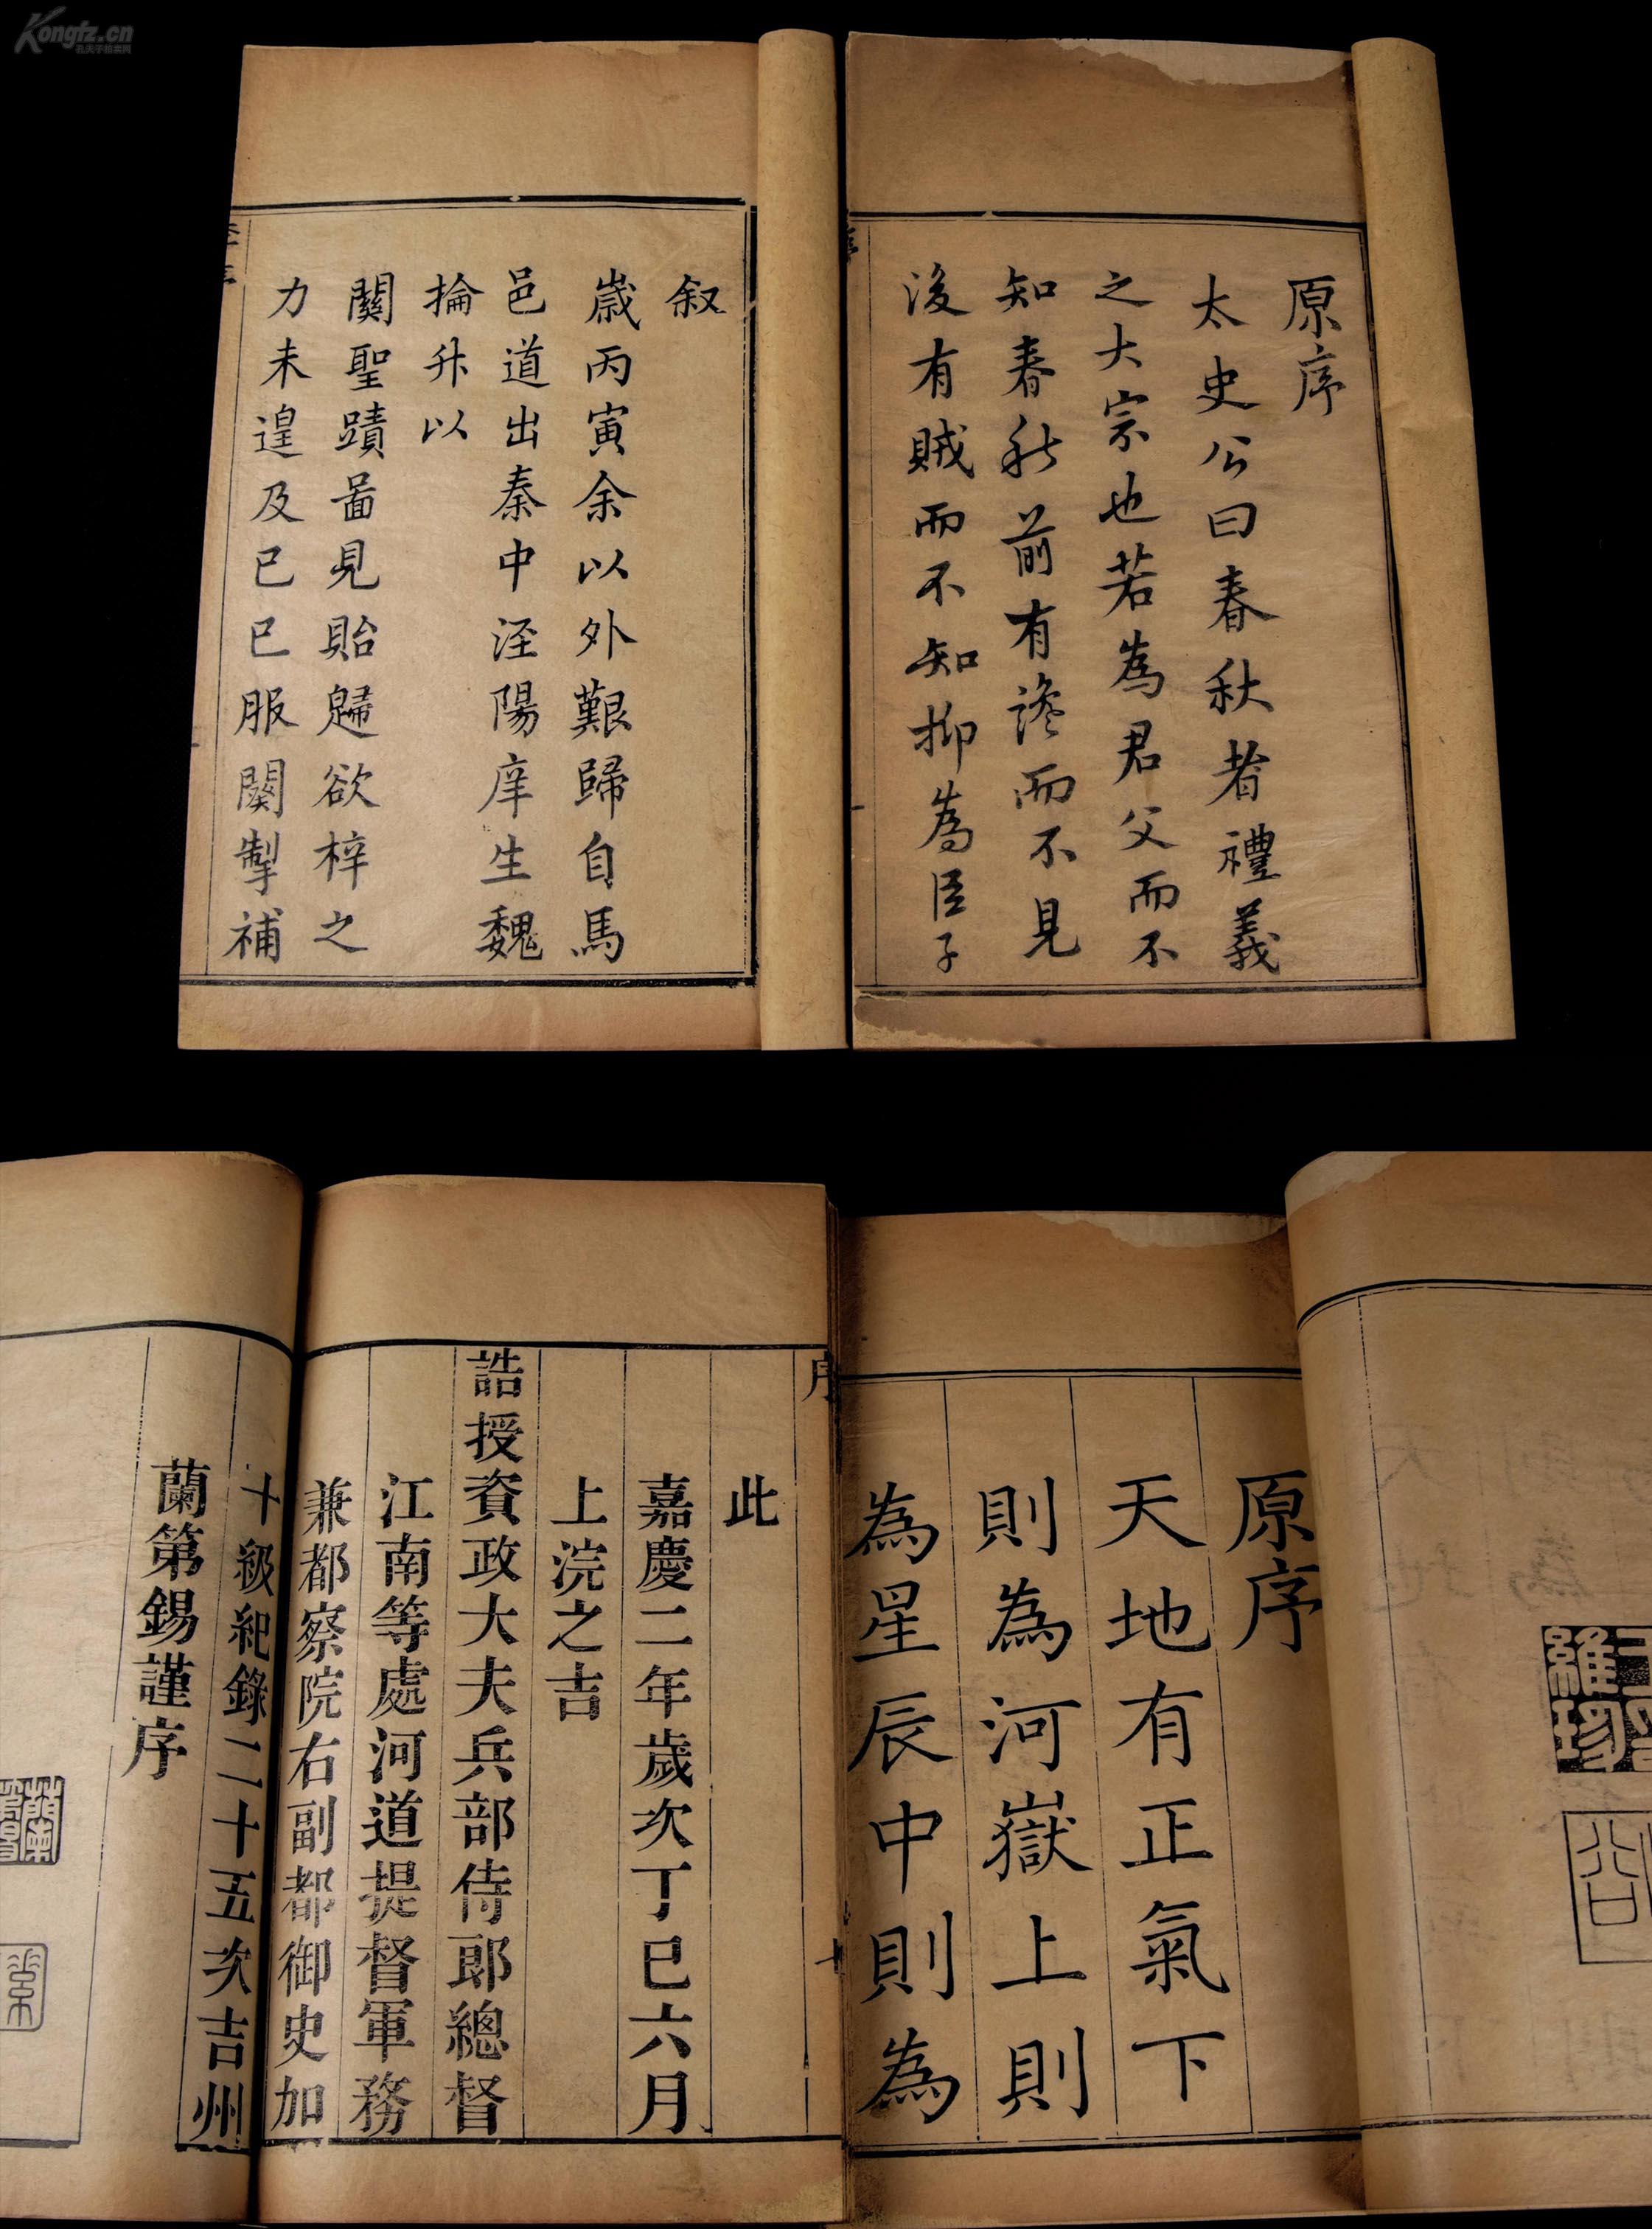 Kongfz.cn
孔夫子拍卖网
原序
太史公曰春秋者禮義
之大宗也若為君父而不
知春秋前有讒而不見
後有賊而不知抑為臣子
叙
嵗丙寅余以外艱歸自馬
邑道出秦中涇陽庠生魏
掄升以
關聖蹟啚見貽歸欲梓之
力未遑及己巳服闋掣補
原序
天地有正氣下
則為河嶽上則
為星辰中則為
序
此
嘉慶二年歲次丁巳六月
上浣之吉
誥授資政大夫兵部侍郎總督
江南等處河道提督軍務
兼都察院右副都御史加
十級紀錄二十五次吉州
蘭第錫謹序